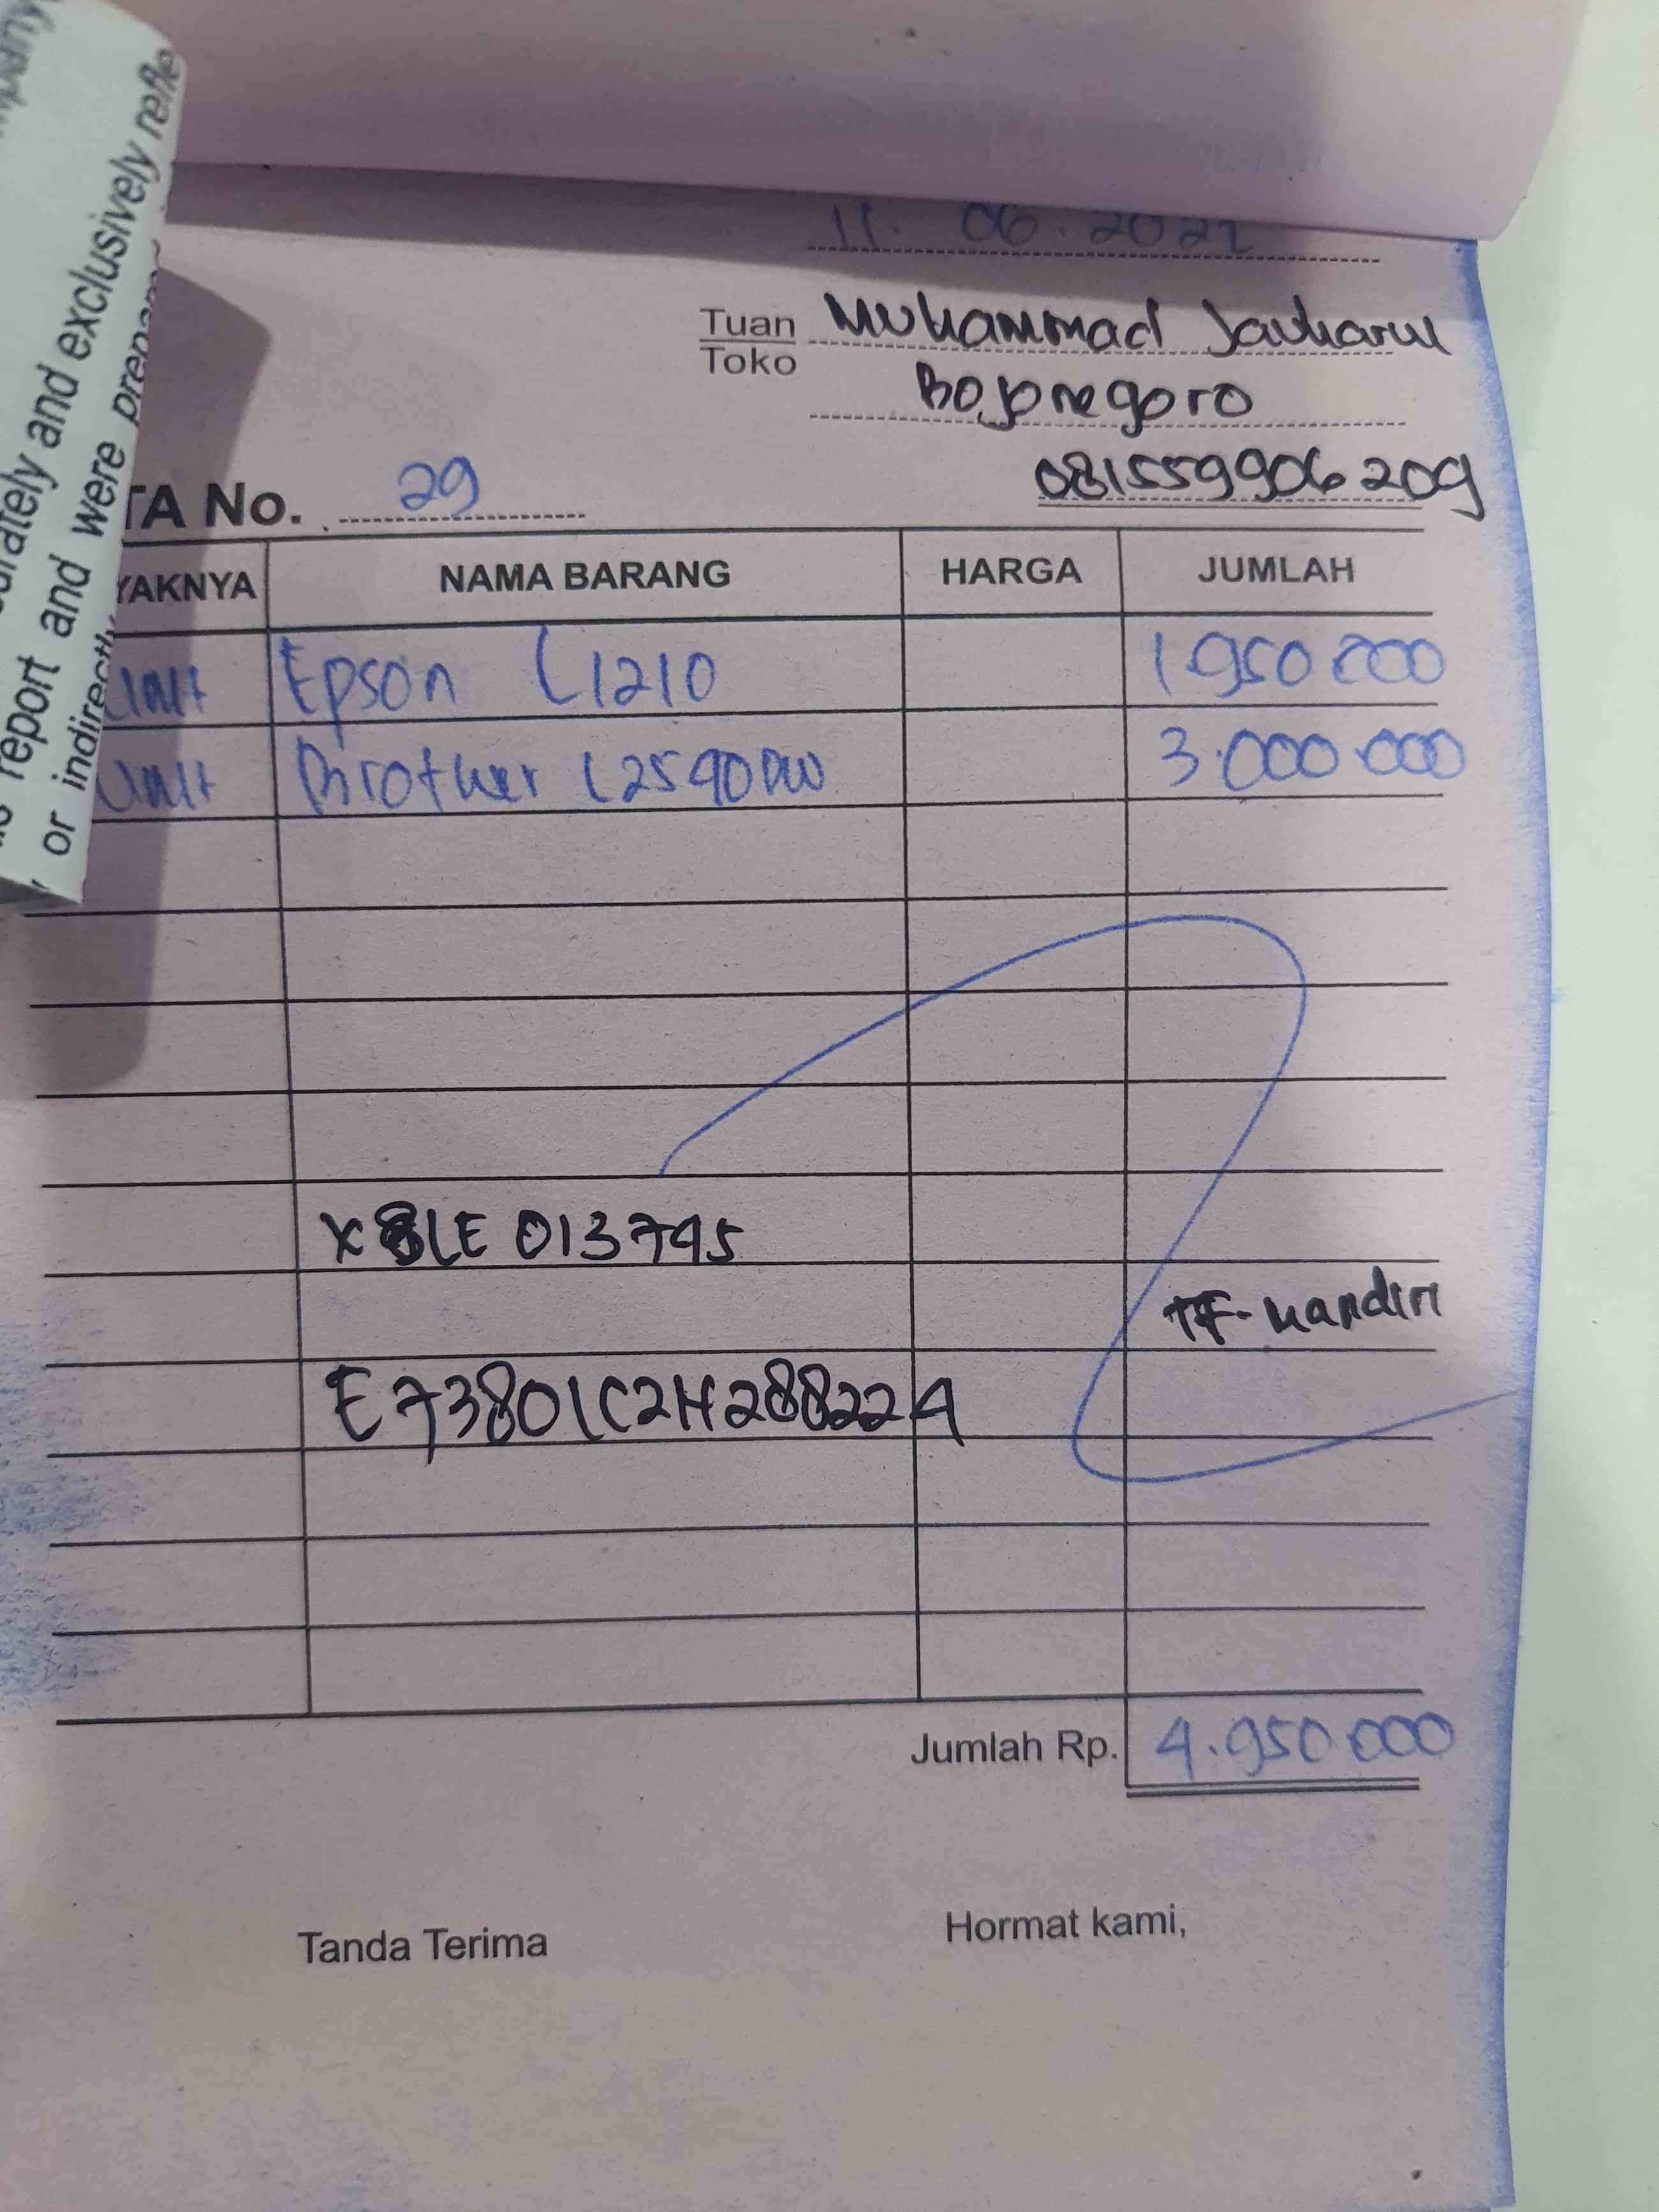 mpany
refle
urately and exclusively
report and were prepare
or indirectly
11. 06. 202
Tuan Muhammad Jauharul
Toko
Bojonegoro
081559906209
TA No. 29
YAKNYA NAMA BARANG HARGA JUMLAH
Unit Epson L1210 1950000
Unit Brother L2540DW 3.000.000
X8LE 013795
TF-Mandiri
E73801C2H288224
Jumlah Rp. 4.950.000
Tanda Terima Hormat kami,